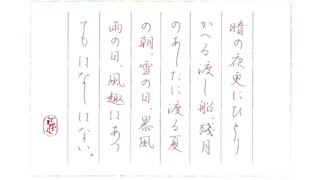 暗の夜更にひとり
かへる渡し船、残月
のあしたに渡る夏
の朝、雪の日、暴風
雨の日、風趣はあつ
てもはなしはない。